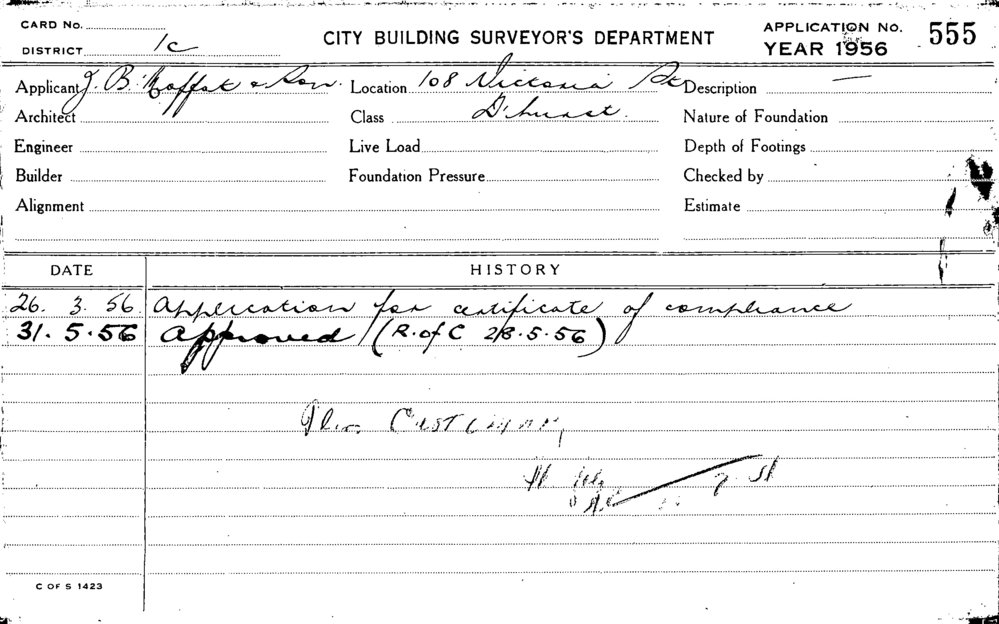 CARD No.
DISTRICT 1c
CITY BUILDING SURVEYOR'S DEPARTMENT
APPLICATION No. 555
YEAR 1956
Applicant J. B. Moffat & Son. Location 108 Victoria St Description —
Architect Class D'hurst. Nature of Foundation
Engineer Live Load Depth of Footings
Builder Foundation Pressure Checked by
Alignment Estimate
DATE HISTORY
26. 3. 56 Application for certificate of compliance
31. 5. 56 Approved (R. of C 28. 5. 56)
C OF S 1423